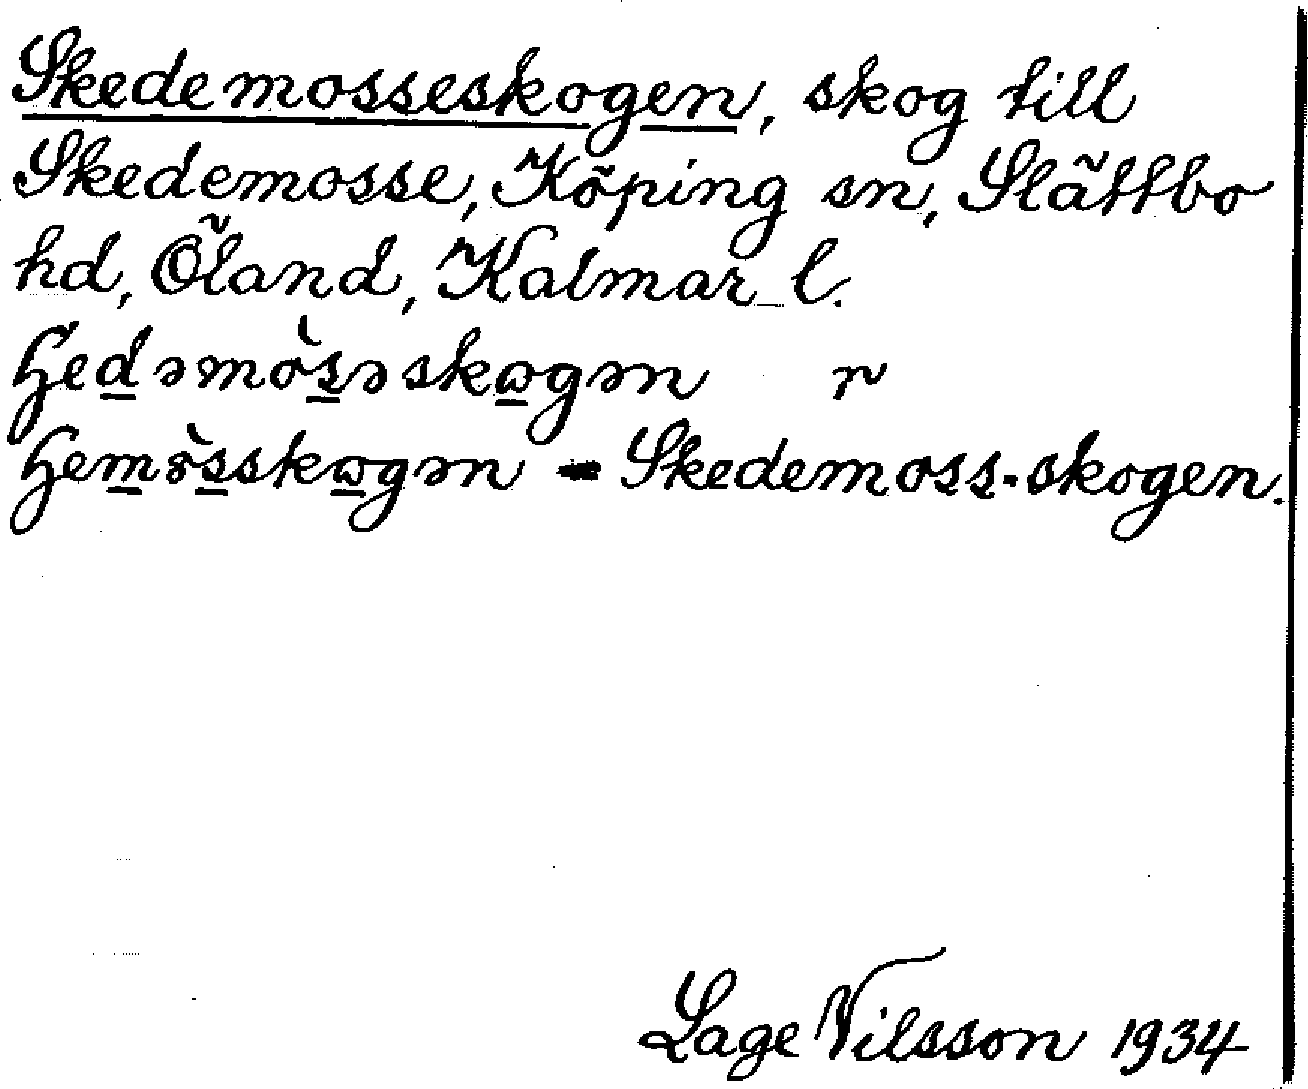 Skedemosseskogen, skog till
Skedemosse, Köping sn, Slättbo
hd, Öland, Kalmar l.
ɧedəmòsəskogən ~
ɧemòsskogən - Skedemoss-skogen.
Lage Nilsson 1934